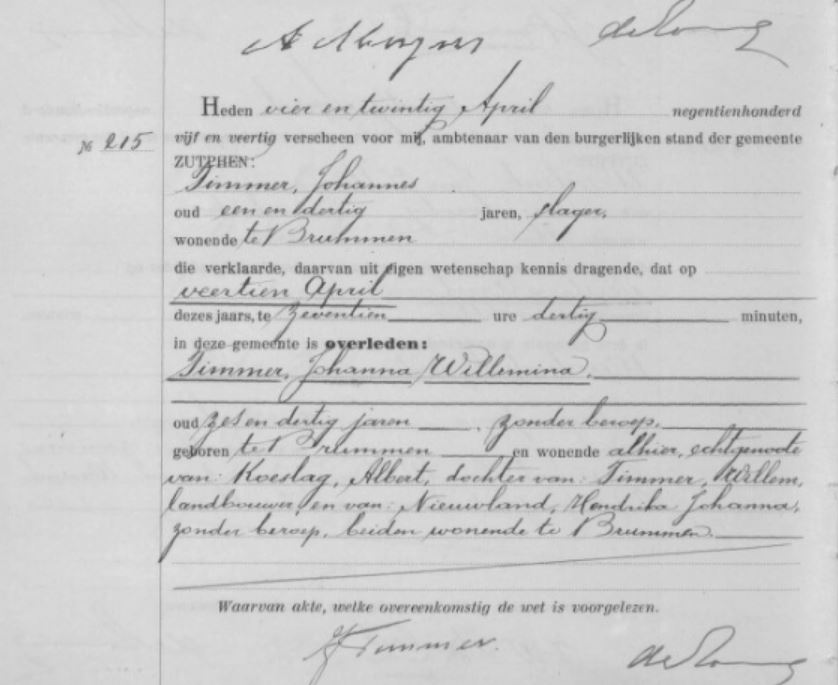 Heden vier en twintig April negentienhonderd
№ 215 vijf en veertig verscheen voor mij, ambtenaar van den burgerlijken stand der gemeente
ZUTPHEN:
Timmer, Johannes
oud een en dertig jaren, slager,
wonende te Brummen
die verklaarde, daarvan uit eigen wetenschap kennis dragende, dat op
veertien April
dezes jaars, te zeventien ure dertig minuten,
in deze gemeente is overleden:
Timmer, Johanna Willemina,
oud zes en dertig jaren, zonder beroep,
geboren te Brummen en wonende alhier, echtgenoote
van: Koeslag, Albert, dochter van: Timmer, Willem,
landbouwer, en van: Nieuwland, Hendrika Johanna,
zonder beroep, beiden wonende te Brummen.
Waarvan akte, welke overeenkomstig de wet is voorgelezen.
J Timmer.